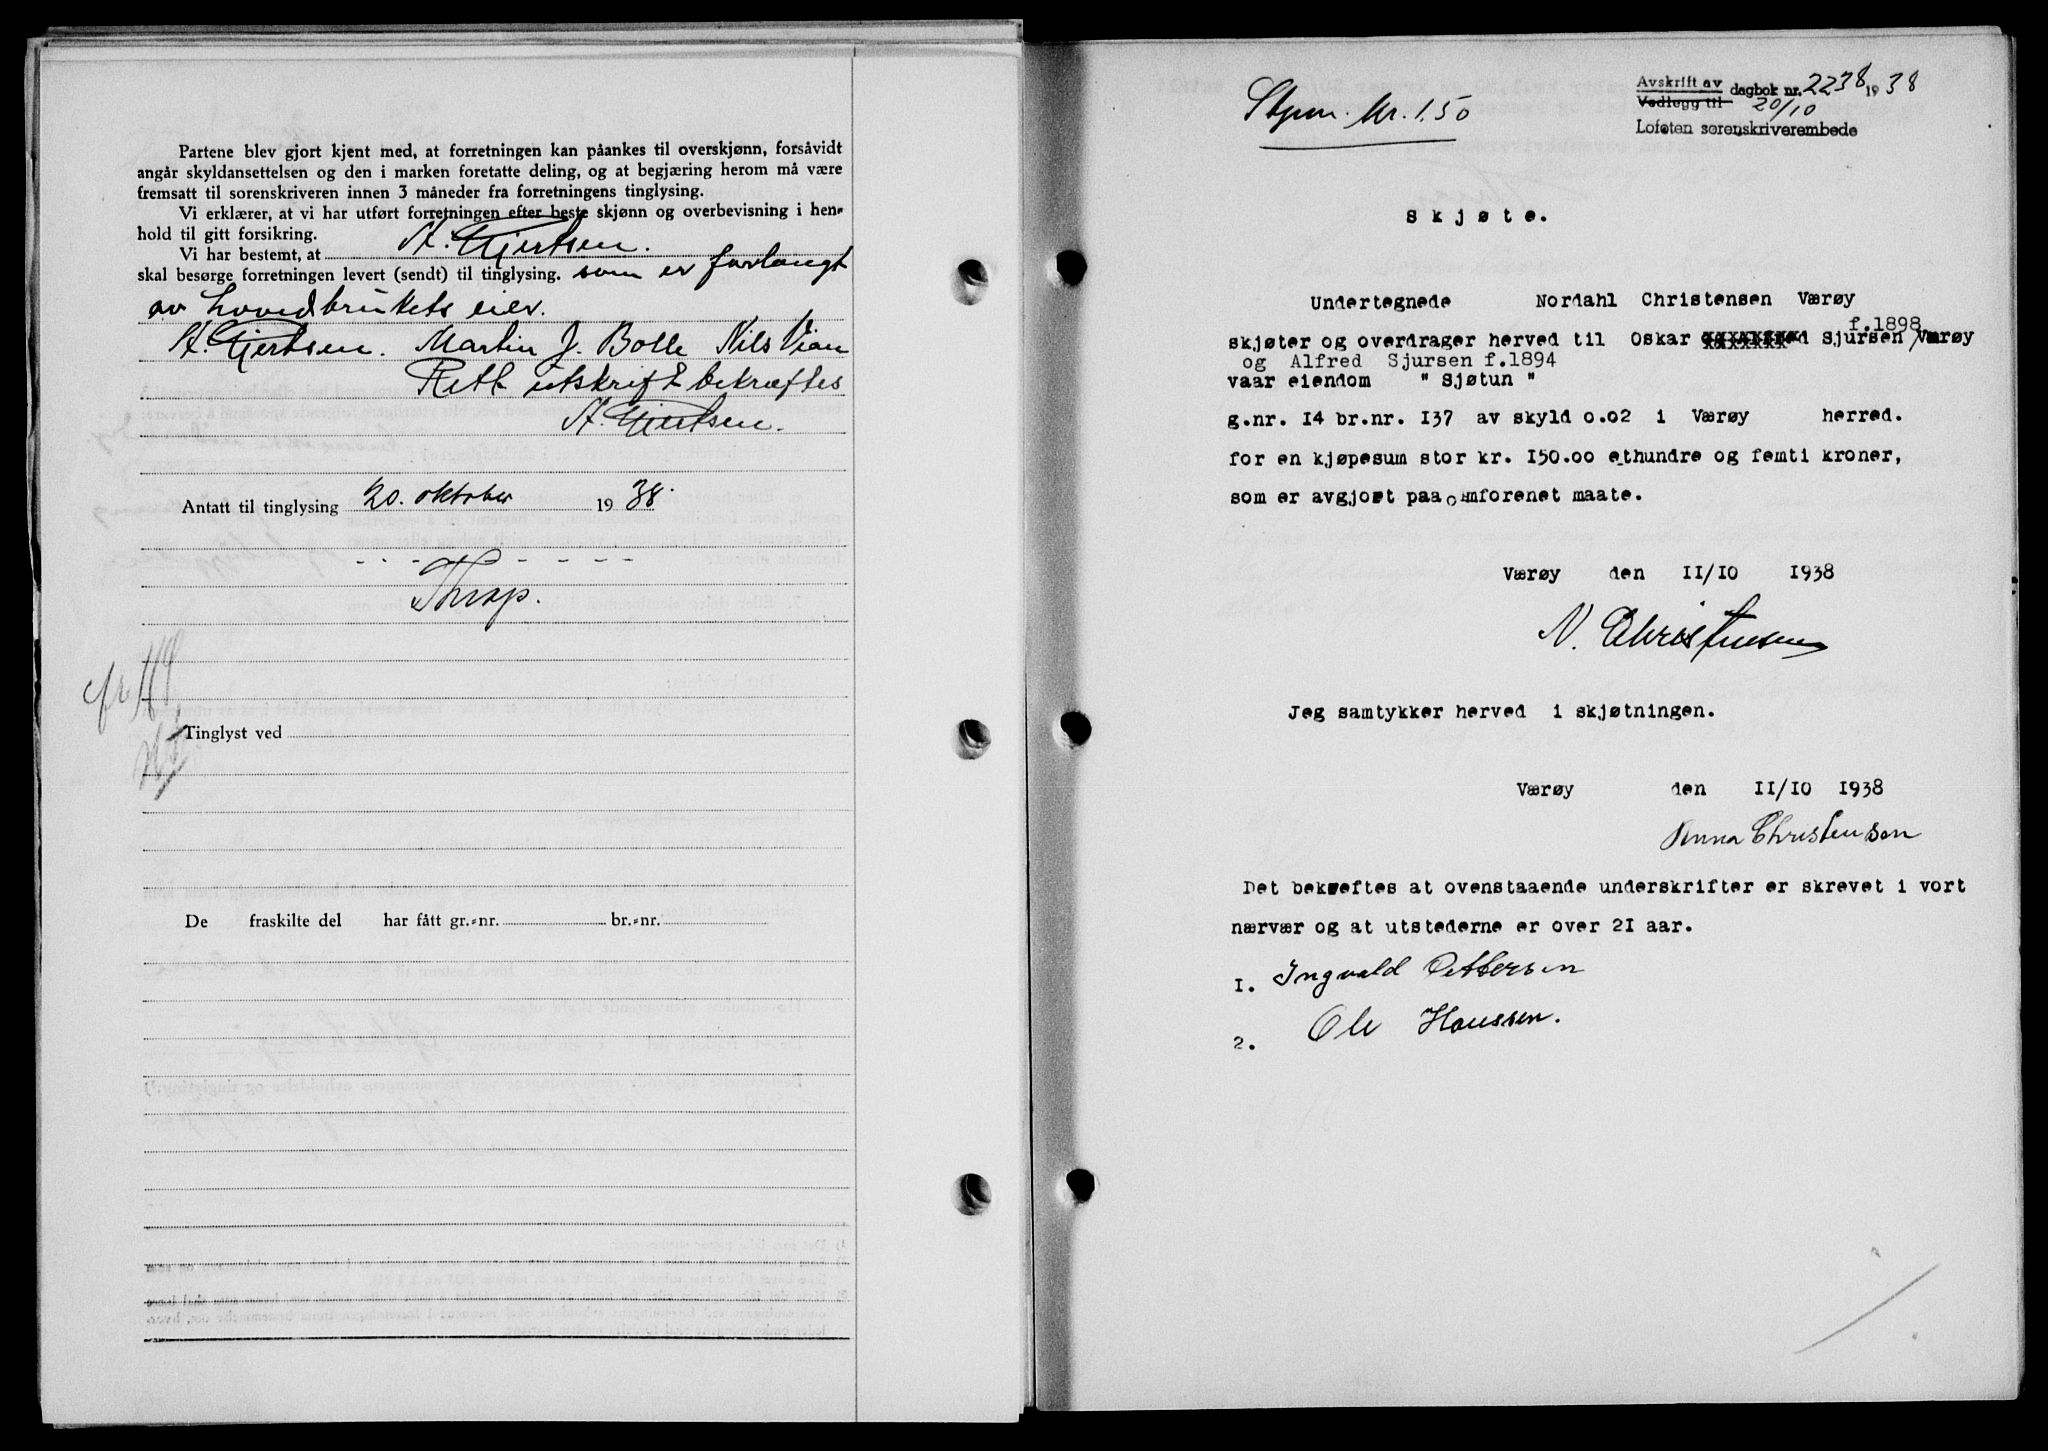 Partene blev gjort kjent med, at forretningen kan påankes til overskjønn, forsåvidt
angår skyldansettelsen og den i marken foretatte deling, og at begjæring herom må være
fremsatt til sorenskriveren innen 3 måneder fra forretningens tinglysing.
Vi erklærer, at vi har utført forretningen efter beste skjønn og overbevisning i hen-
hold til gitt forsikring.
Vi har bestemt, at A. Gjertsen.
skal besørge forretningen levert (sendt) til tinglysing. som er forlangt
av hovedbrukets eier.
A. Gjertsen. Martin J. Bolle Nils Vian
Rett utskrift bekræftes
A. Gjertsen.
Antatt til tinglysing 20. oktober 1938.
- - - - - - - -
Thrap.
Tinglyst ved
De fraskilte del har fått gr.-nr. br.-nr.
Stpm. kr. 1,50
Avskrift av
Vedlegg til dagbok nr. 2238 1938
20/10
Lofoten sorenskriverembede
Skjøte.
Undertegnede Nordahl Christensen Værøy
f.1898
skjøter og overdrager herved til Oskar Sjursen / Værøy
og Alfred Sjursen f.1894
vaar eiendom " Sjøtun "
g.nr. 14 br.nr. 137 av skyld 0.02 i Værøy herred.
for en kjøpesum stor kr. 150.00 ethundre og femti kroner,
som er avgjort paa omforenet maate.
Værøy den 11/10 1938
N. Christensen
Jeg samtykker herved i skjøtningen.
Værøy den 11/10 1938
Anna Christensen
Det bekreftes at ovenstaaende underskrifter er skrevet i vort
nærvær og at utstederne er over 21 aar.
1. Ingvald Pettersen
2. Ole Hanssen.